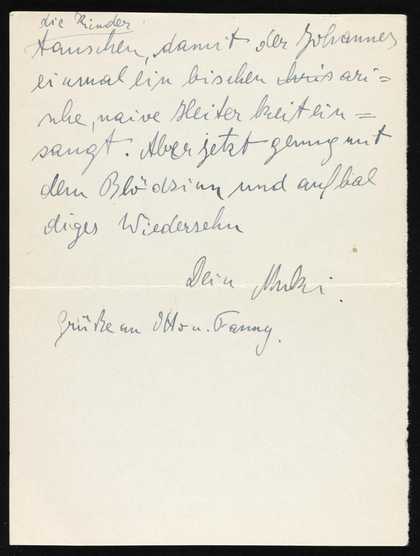 die Kinder
tauschen, damit der Johannes
einmal ein bischen
sche, naive Heiterkeit ein=
saugt. Aber jetzt genug mit
dem Blödsinn und auf bal
diges Wiedersehn
Dein
Grüße an Otto u. Fanny.